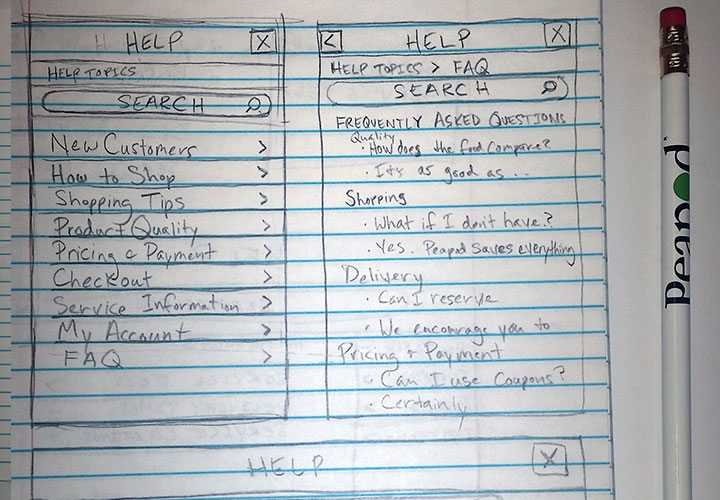 HELP X
HELP TOPICS
SEARCH
New Customers >
How to Shop >
Shopping Tips >
Product Quality >
Pricing & Payment >
Checkout >
Service Information >
My Account >
FAQ >
< HELP X
HELP TOPICS > FAQ
SEARCH
FREQUENTLY ASKED QUESTIONS
Quality
· How does the food compare?
· It's as good as...
Shopping
· What if I don't have.?
· Yes. Peapod saves everything
Delivery
· Can I reserve
· We encourage you to
Pricing & Payment
· Can I use Coupons?
· Certainly
HELP X
Peapod